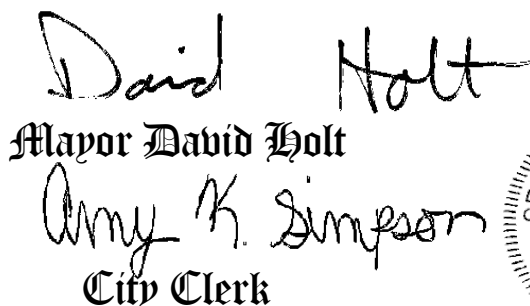 David Holt
Mayor David Holt
Amy K. Simpson
City Clerk